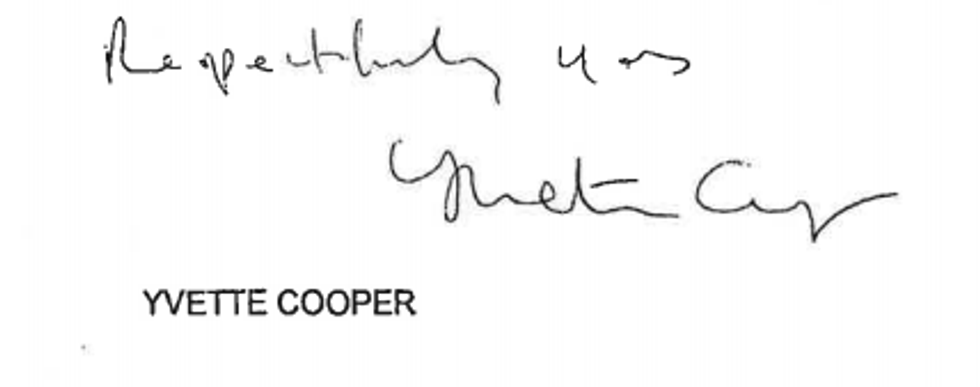 Respectfully yours
Yvette Cooper
YVETTE COOPER